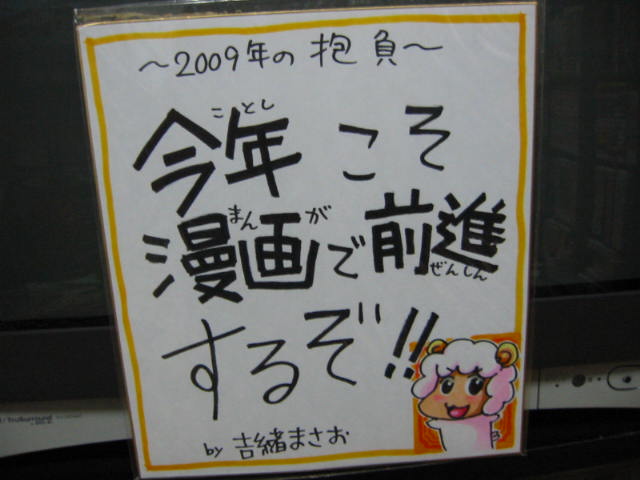 ～2009年の抱負～
ことし
今年こそ
まんが
漫画で前進
ぜんしん
するぞ!!
by 吉緒まさお